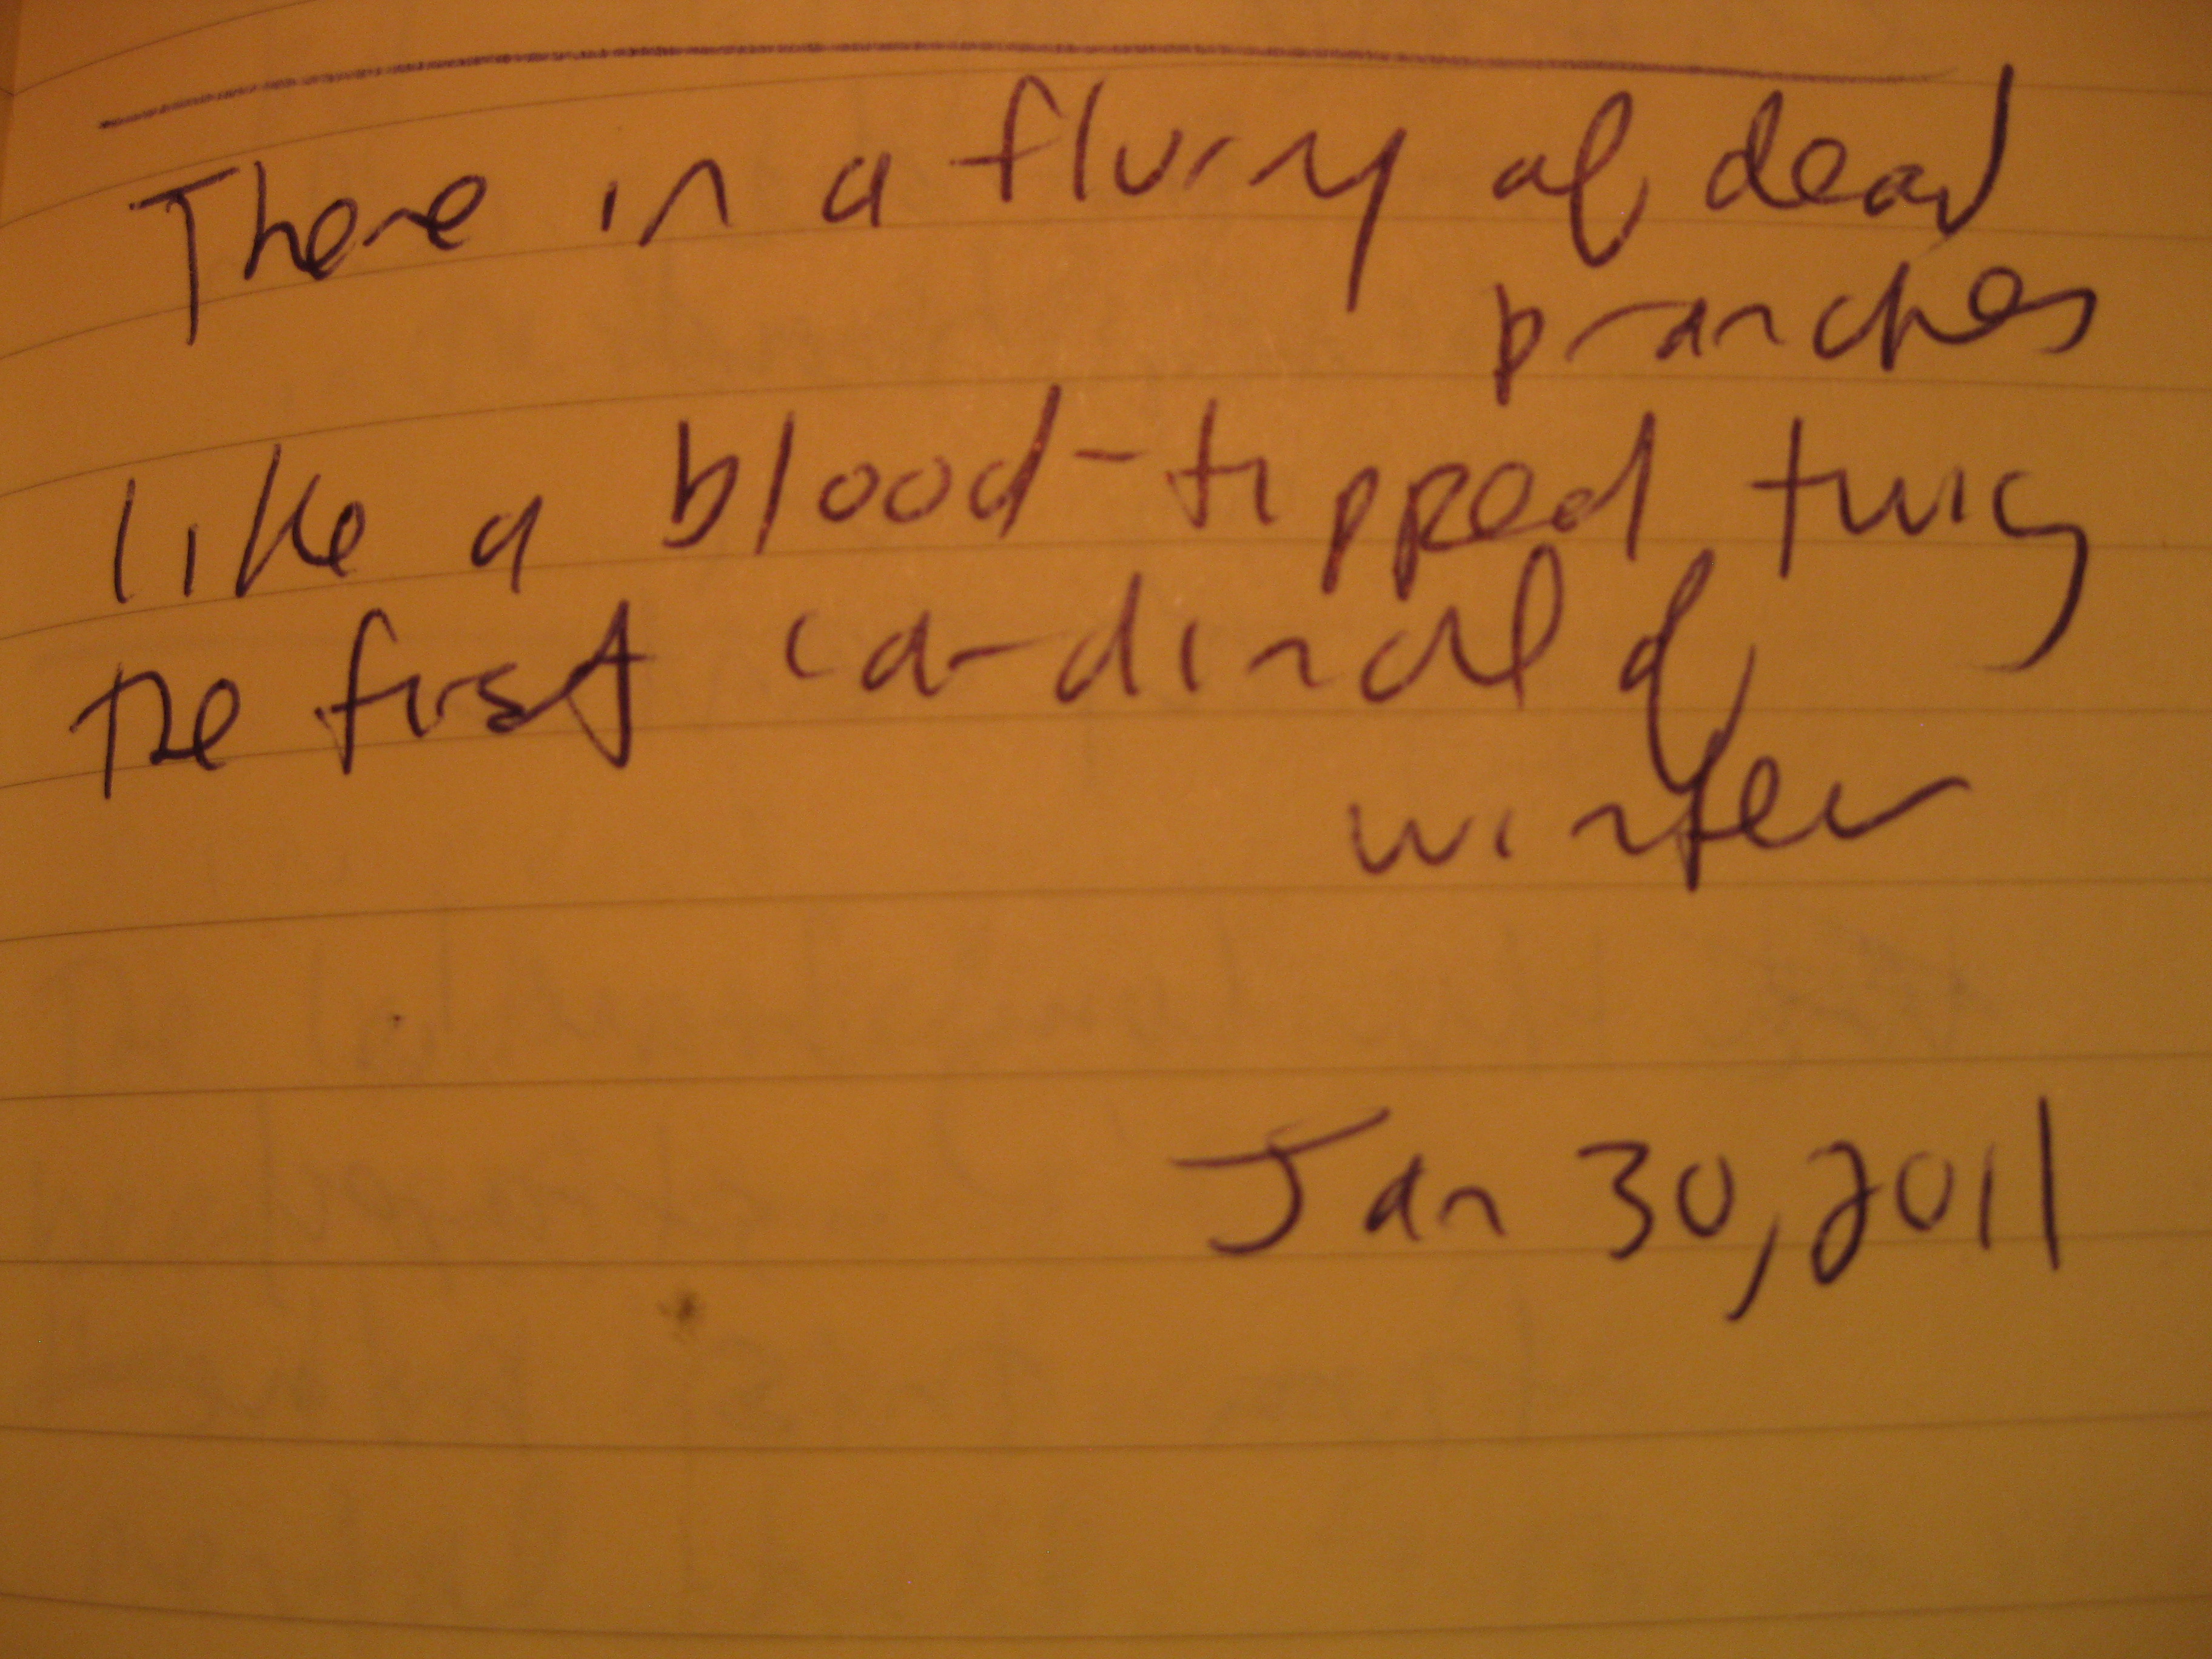 There in a flurry of dead
branches
like a blood-tipped twig
the first cardinal of
winter
Jan 30, 2011